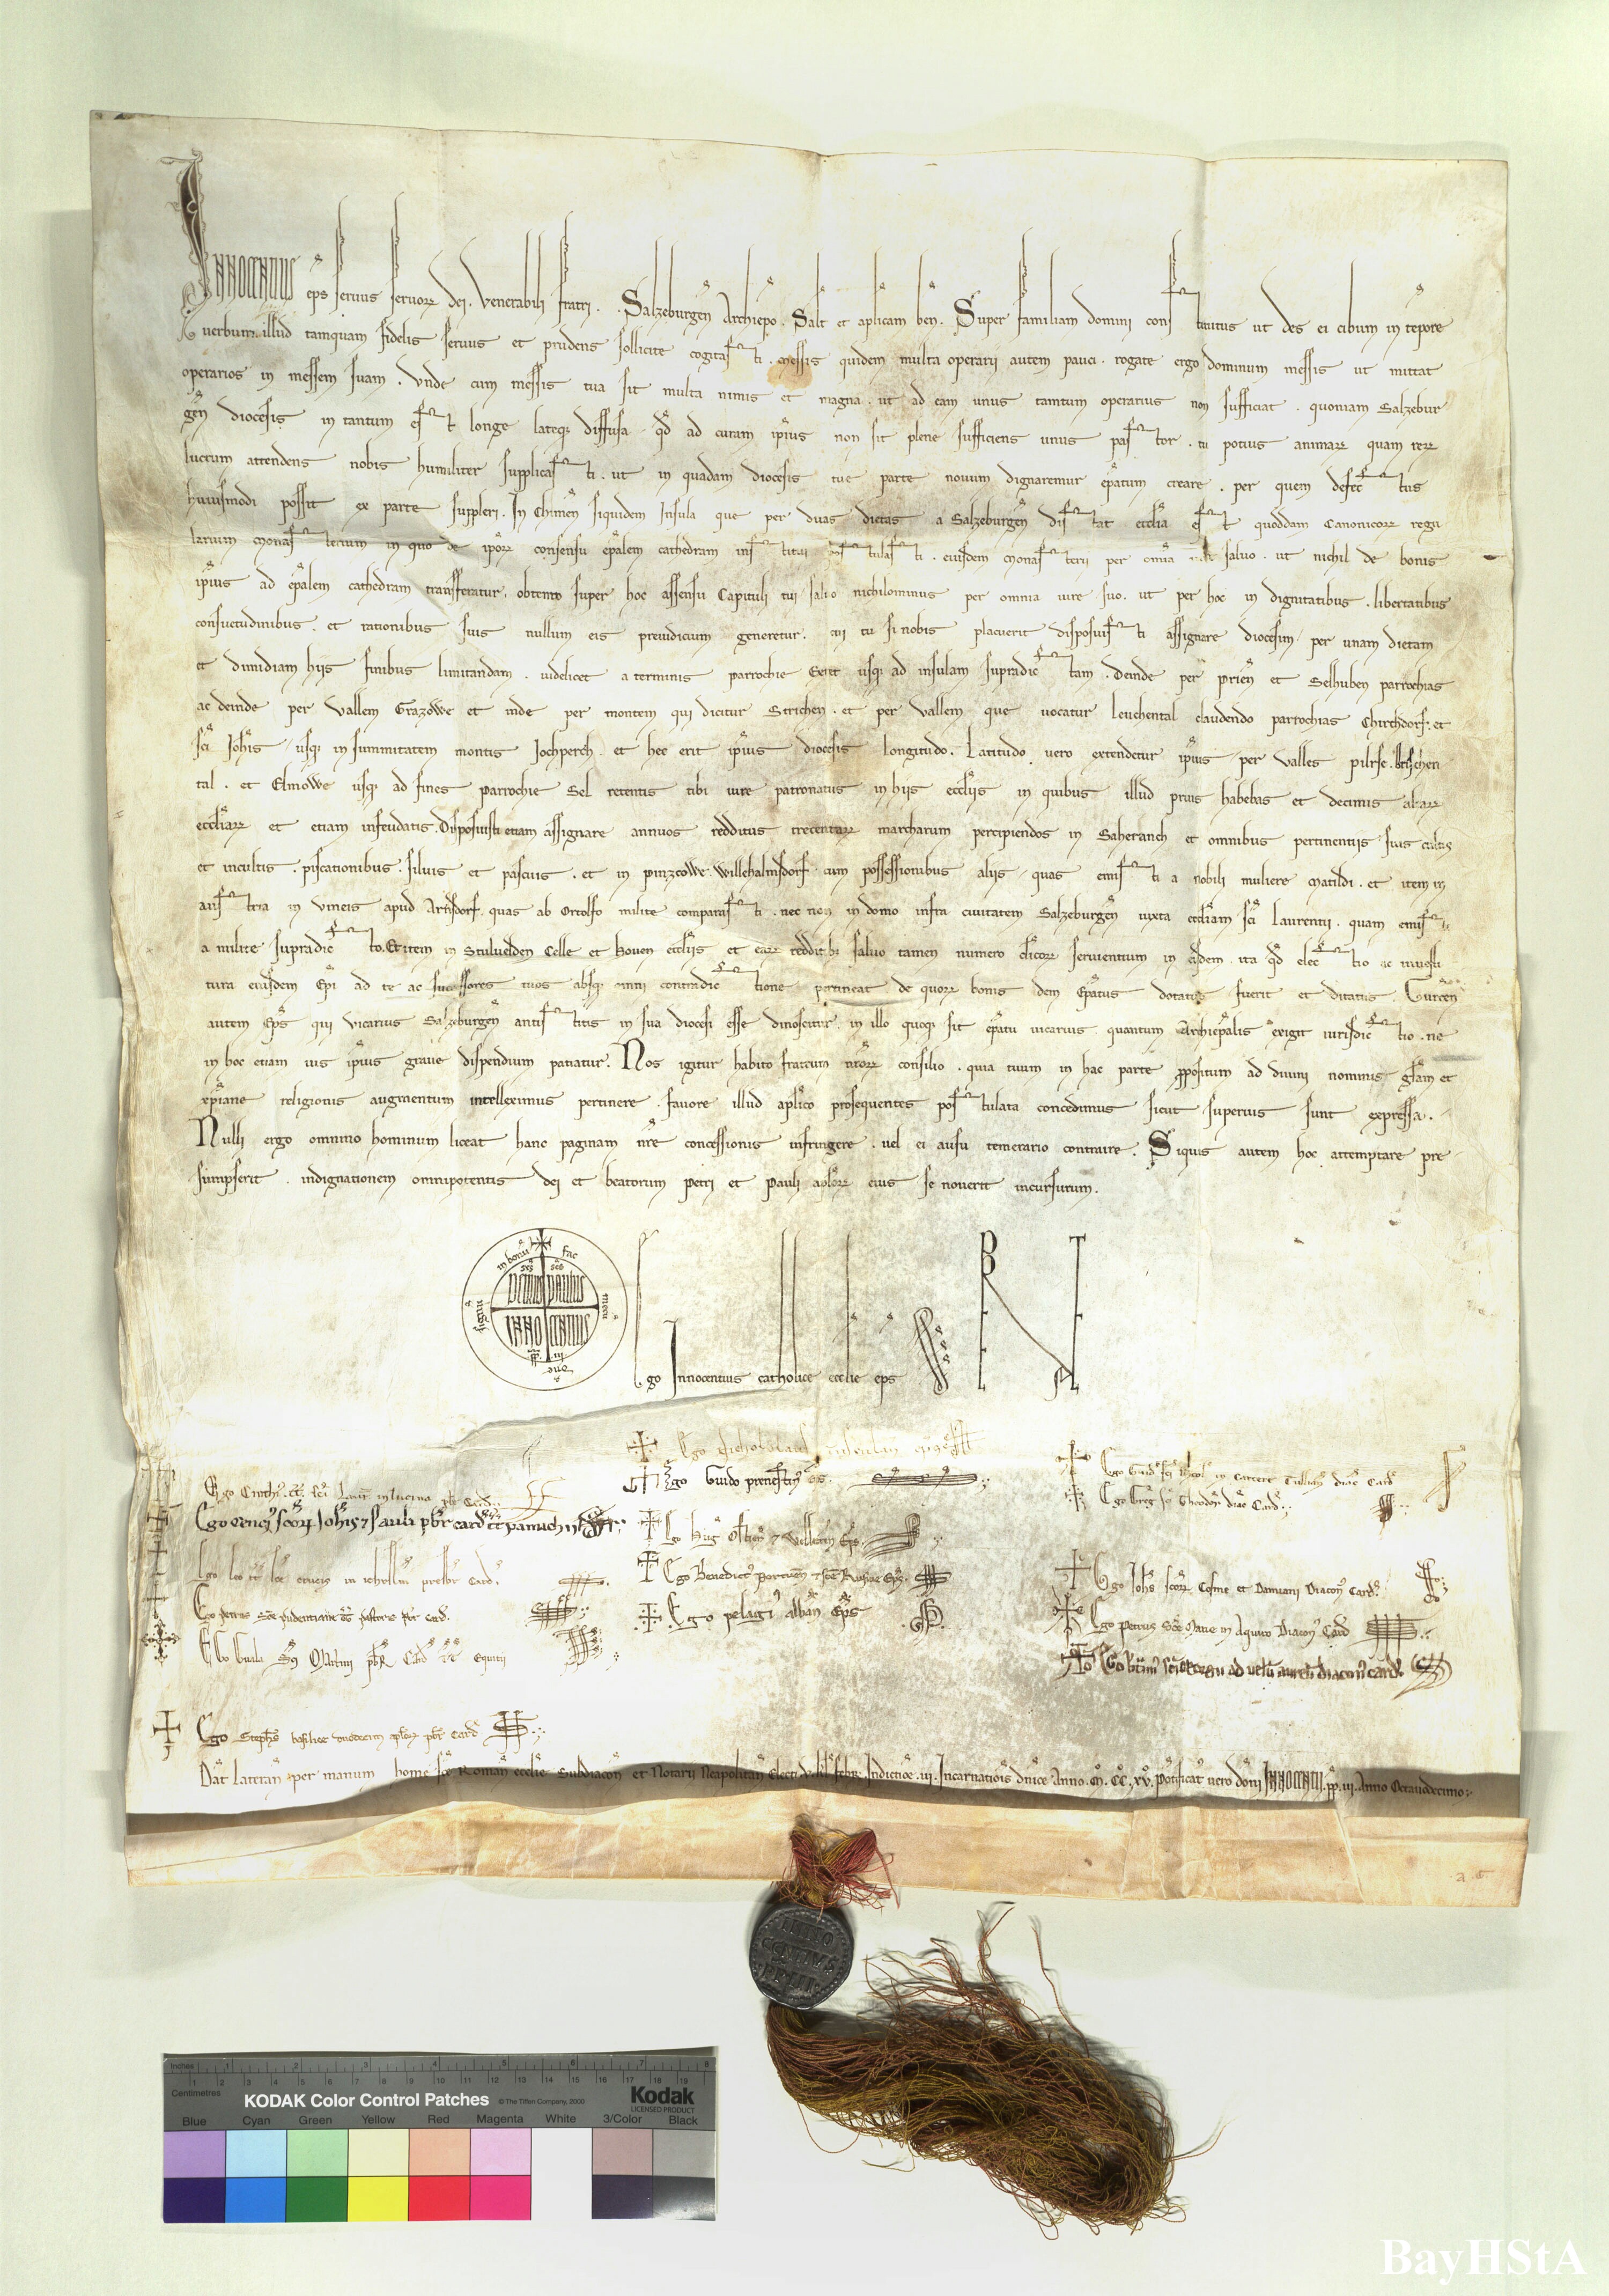 INNOCENTIUS ep̄s seruus seruoꝝ dei. Venerabili fratri . . Salzeburgeñ Archiep̄o. Salt̄ et apl̄icam beñ. Super familiam domini constitutus ut des ei cibum in tēpore
uerbum illud tamquam fidelis seruus et prudens sollicite cogitasti. Messis quidem multa operarii autem pauci. rogate ergo dominum messis ut mittat
operarios in messem suam. Vnde cum messis tua sit multa nimis et magna. ut ad eam unus tantum operarius non sufficiat. quoniam Salzebur
geñ diocesis in tantum est longe lateqꝫ diffusa qd̄ ad curam ip̄ius non sit plene sufficiens unus pastor. tu potius animaꝝ quam reꝝ
lucrum attendens nobis humiliter supplicasti. ut in quadam diocesis tue parte nouum dignaremur ep̄atum creare. per quem defectus
huiusmodi possit ex parte suppleri. In Chimeñ siquidem Insula que per duas dietas a Salzeburgeñ distat eccl̄ia est quoddam Canonicoꝝ regu
larium Monasterium in quo de ip̄oꝝ consensu ep̄alem cathedram institui postulasti. eiusdem Monasterii per om̄ia iure saluo. ut nichil de bonis
ip̄ius ad ep̄alem cathedram transferatur, obtento super hoc assensu Capituli tui saluo nichilominus per omnia iure suo. ut per hoc in dignitatibus. libertatibus
consuetudinibus. et rationibus suis nullum eis preiudicium generetur. cui tu si nobis placuerit disposuisti assignare diocesim per unam dietam
et dimidiam hiis finibus limitandam. uidelicet a terminis parrochie usqꝫ ad insulam supradictam. Deinde per prieñ et Selhuben parrochias
ac deinde per vallem Grazowe et inde per montem qui dicitur Strichen. et per vallem que uocatur leuchental claudendo parrochias Chirchdorf. et
sc̄i Joh̄is usqꝫ in summitatem montis Jochperch. et hec erit ip̄ius diocesis longitudo. Latitudo uero extendetur ip̄ius per valles pilrse.
tal. et Elmowe usqꝫ ad fines parrochie Sel retentis tibi iure patronatus in hiis eccl̄iis in quibus illud prius habebas et decimis aliaꝝ
eccl̄iaꝝ et etiam infeudatis. Disposuisti etiam assignare annuos redditus trecentaꝝ marcharum percipiendos in Saheranch et omnibus pertinentiis suis cultis
et incultis. piscationibus. siluis et pascuis. et in pinzcowe. Willehalmsdorf cum possessionibus aliis quas emisti a nobili muliere Matildi. et item in
austria in vineis apud Arnsdorf. quas ab Ortolfo milite comparasti. nec non in domo infra ciuitatem Salzeburgeñ iuxta eccl̄iam sc̄i laurentii. quam emisti
a milite supradicto. Et item in Stulvelden Celle et Houen eccl̄iis et eaꝝ redditibꝫ saluo tamen numero cl̄icoꝝ seruientium in eisdem. ita qd̄ electio ac inuesti
tura eiusdem Ep̄i ad te ac successores tuos absqꝫ omni contradictione pertineat de quoꝝ bonis idem Ep̄atus dotatus fuerit et ditatus. Gurceñ
autem Ep̄s qui vicarius Salzeburgeñ antistitis in sua diocesi esse dinoscitur. in illo quoqꝫ sit ep̄atu uicarius quantum Archiep̄alis exigit iurisdictio. ne
in hoc etiam ius ip̄ius graue dispendium patiatur. Nos igitur habito fratrum nr̄oꝝ consilio. quia tuum in hac parte ꝓpositum ad diuini nominis gl̄am et
xp̄iane religionis augmentum intelleximus pertinere. fauore illud apl̄ico prosequentes postulata concedimus sicut superius sunt expressa.
Nulli ergo omnino hominum liceat hanc paginam nr̄e concessionis infringere. uel ei ausu temerario contraire. Siquis autem hoc attemptare pre
sumpserit. indignationem omnipotentis dei et beatorum Petri et Pauli apl̄oꝝ eius se nouerit incursurum.
fac mecū dn̄e signū in bonū
sc̄s PETRUS sc̄s PAULUS
INNOCENTIUS pp. III.
Ego Innocentius catholice ecclie ep̄s
Ego Nicholaus Tusculañ ep̄s
Ego Guido prenestiñ ep̄s.
Ego Hug Ostieñ ⁊ Velletreñ Ep̄s.
Ego Benedict' Portueñ ⁊ sc̄e Rufine Ep̄s.
Ego pelagi' albañ Ep̄s
Ego Cinthi' tt̄. sc̄i Laur̄ in lucina pb̄r Card̄.
Ego cenci' sc̄oꝝ Joh̄is ⁊ Pauli pb̄r card̄ tt̄ pamachii
Ego leo tt̄ sc̄e crucis in ieħrl̄m presb̄r Card̄.
Ego petrus sc̄e pudentiane tt̄ pastoris pb̄r card̄.
Ego Guala sc̄i Martini pb̄r Card̄ tt̄ Equitii
Ego Stephs̄ basilice duodecim apl̄oꝝ pb̄r Card̄
Ego Guid' sc̄i Nicol' in carcere Tulliañ diac̄ Card̄
Ego Greg' sc̄i Theodori diac̄ Card̄.
Ego Joh̄s sc̄oꝝ Cosme et Damiani Diacoñ Card̄.
Ego Petrus sc̄e Marie in Aquiro Diacoñ Card̄
Ego sc̄i Georgii ad velū aureū diacoñ card̄.
Dat̄ Laterañ per manum Thome sc̄e Romañ eccl̄ie Subdiacoñ et Notarii Neapolitañ Electi. V. kl' febr̄. Indictioē. iii. Incarnatiois dn̄ice Anno. M̄. CC̄. xv̄. Pōtificat' uero dōni INNOCENTII. pp̄. iii. Anno Octauodecimo.
a. 5.
INNO
CENTIVS
PP III
Inches 1 2 3 4 5 6 7 8
Centimetres 1 2 3 4 5 6 7 8 9 10 11 12 13 14 15 16 17 18 19
KODAK Color Control Patches © The Tiffen Company, 2000 Kodak
LICENSED PRODUCT
Blue Cyan Green Yellow Red Magenta White 3/Color Black
BayHStA